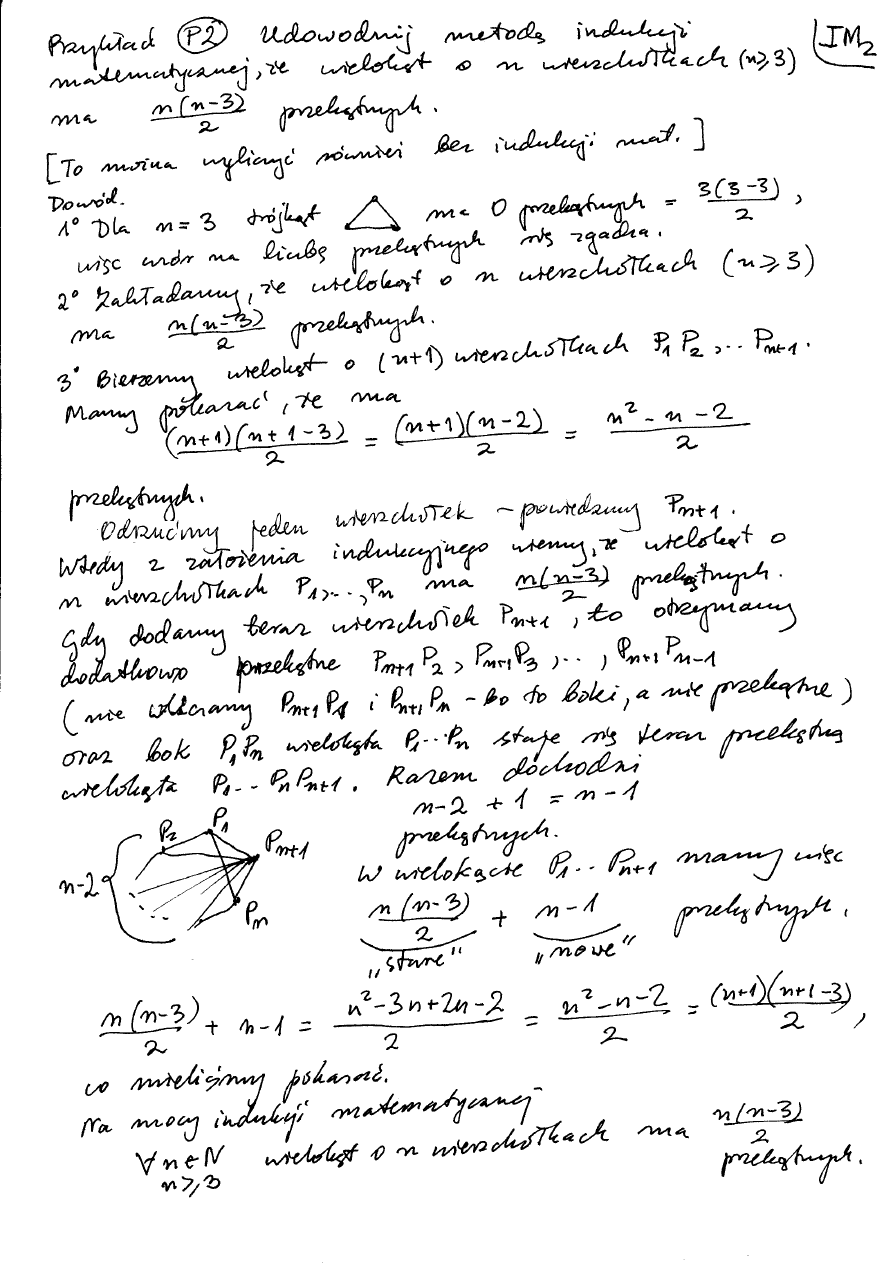 Przykład (P2) Udowodnij metodą indukcji
IM₂
matematycznej, że wielokąt o n wierzchołkach (n≥3)
ma n(n-3)/2 przekątnych.
[To można wyliczyć również bez indukcji mat.]
Dowód.
1° Dla n=3 trójkąt △ ma 0 przekątnych = 3(3-3)/2,
więc wzór na liczbę przekątnych się zgadza.
2° Zakładamy, że wielokąt o n wierzchołkach (n≥3)
ma n(n-3)/2 przekątnych.
3° Bierzemy wielokąt o (n+1) wierzchołkach P₁P₂,...Pₙ₊₁.
Mamy pokazać, że ma
(n+1)(n+1-3)/2 = (n+1)(n-2)/2 = n²-n-2/2
przekątnych.
Odrzućmy jeden wierzchołek – powiedzmy Pₙ₊₁.
Wtedy z założenia indukcyjnego wiemy, że wielokąt o
n wierzchołkach P₁,...,Pₙ ma n(n-3)/2 przekątnych.
Gdy dodamy teraz wierzchołek Pₙ₊₁, to otrzymamy
dodatkowo przekątne Pₙ₊₁P₂, Pₙ₊₁P₃,..., Pₙ₊₁Pₙ₋₁
(nie wliczamy Pₙ₊₁P₁ i Pₙ₊₁Pₙ – bo to boki, a nie przekątne)
oraz bok P₁Pₙ wielokąta P₁...Pₙ staje się teraz przekątną
wielokąta P₁...PₙPₙ₊₁. Razem dochodzi
n-2 + 1 = n-1
przekątnych.
P₂ P₁ Pₙ₊₁
n-2
Pₙ
W wielokącie P₁...Pₙ₊₁ mamy więc
n(n-3)/2 + n-1 przekątnych.
„stare" „nowe"
n(n-3)/2 + n-1 = n²-3n+2n-2/2 = n²-n-2/2 = (n+1)(n+1-3)/2,
co mieliśmy pokazać.
Na mocy indukcji matematycznej
∀n∈N wielokąt o n wierzchołkach ma n(n-3)/2
n≥3 przekątnych.